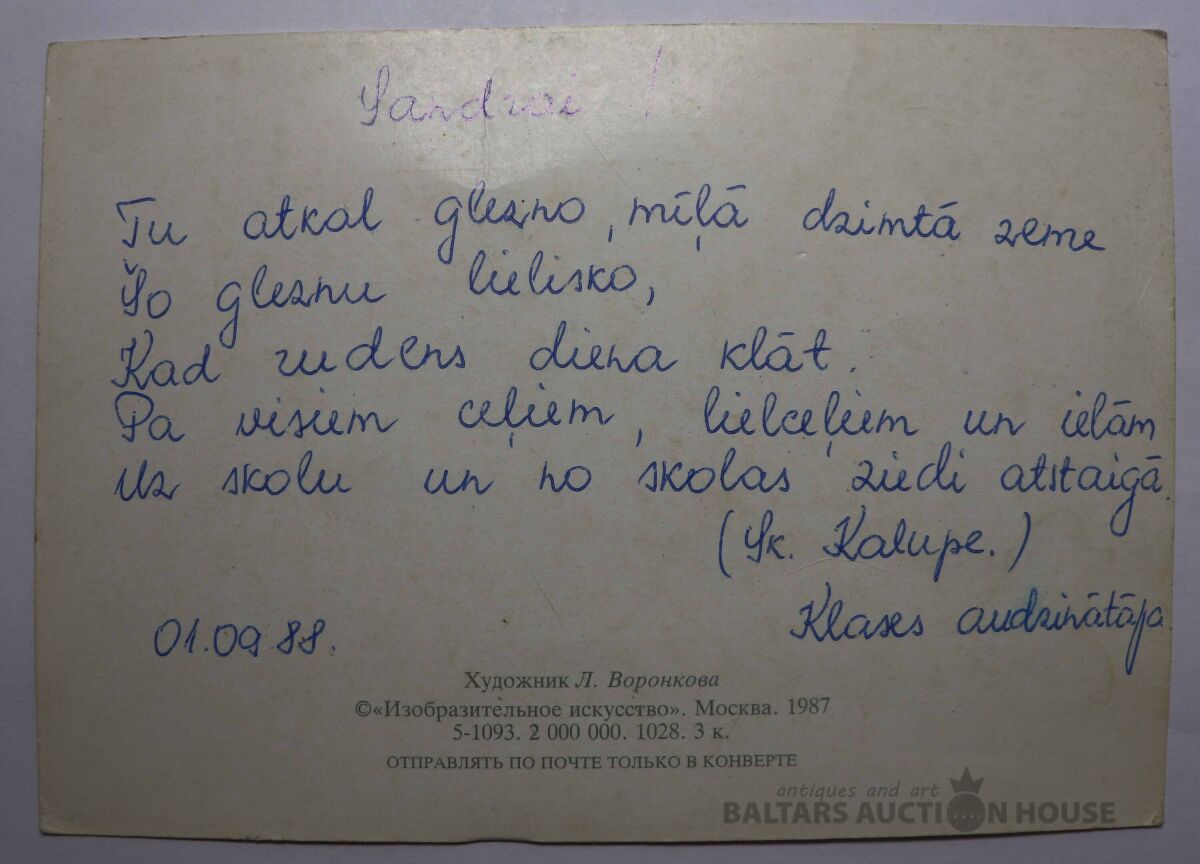 Sandrai !
Tu atkal glezno, mīļā dzimtā zeme
Šo gleznu lielisko,
Kad rudens diena klāt.
Pa visiem ceļiem, lielceļiem un ielām
Uz skolu un no skolas ziedi atstaigā.
(Sk. Kalupe.)
Klases audzinātāja
01.09.88.
Художник Л. Воронкова
©«Изобразительное искусство». Москва. 1987
5-1093. 2 000 000. 1028. 3 к.
ОТПРАВЛЯТЬ ПО ПОЧТЕ ТОЛЬКО В КОНВЕРТЕ
antiques and art
BALTARS AUCTION HOUSE